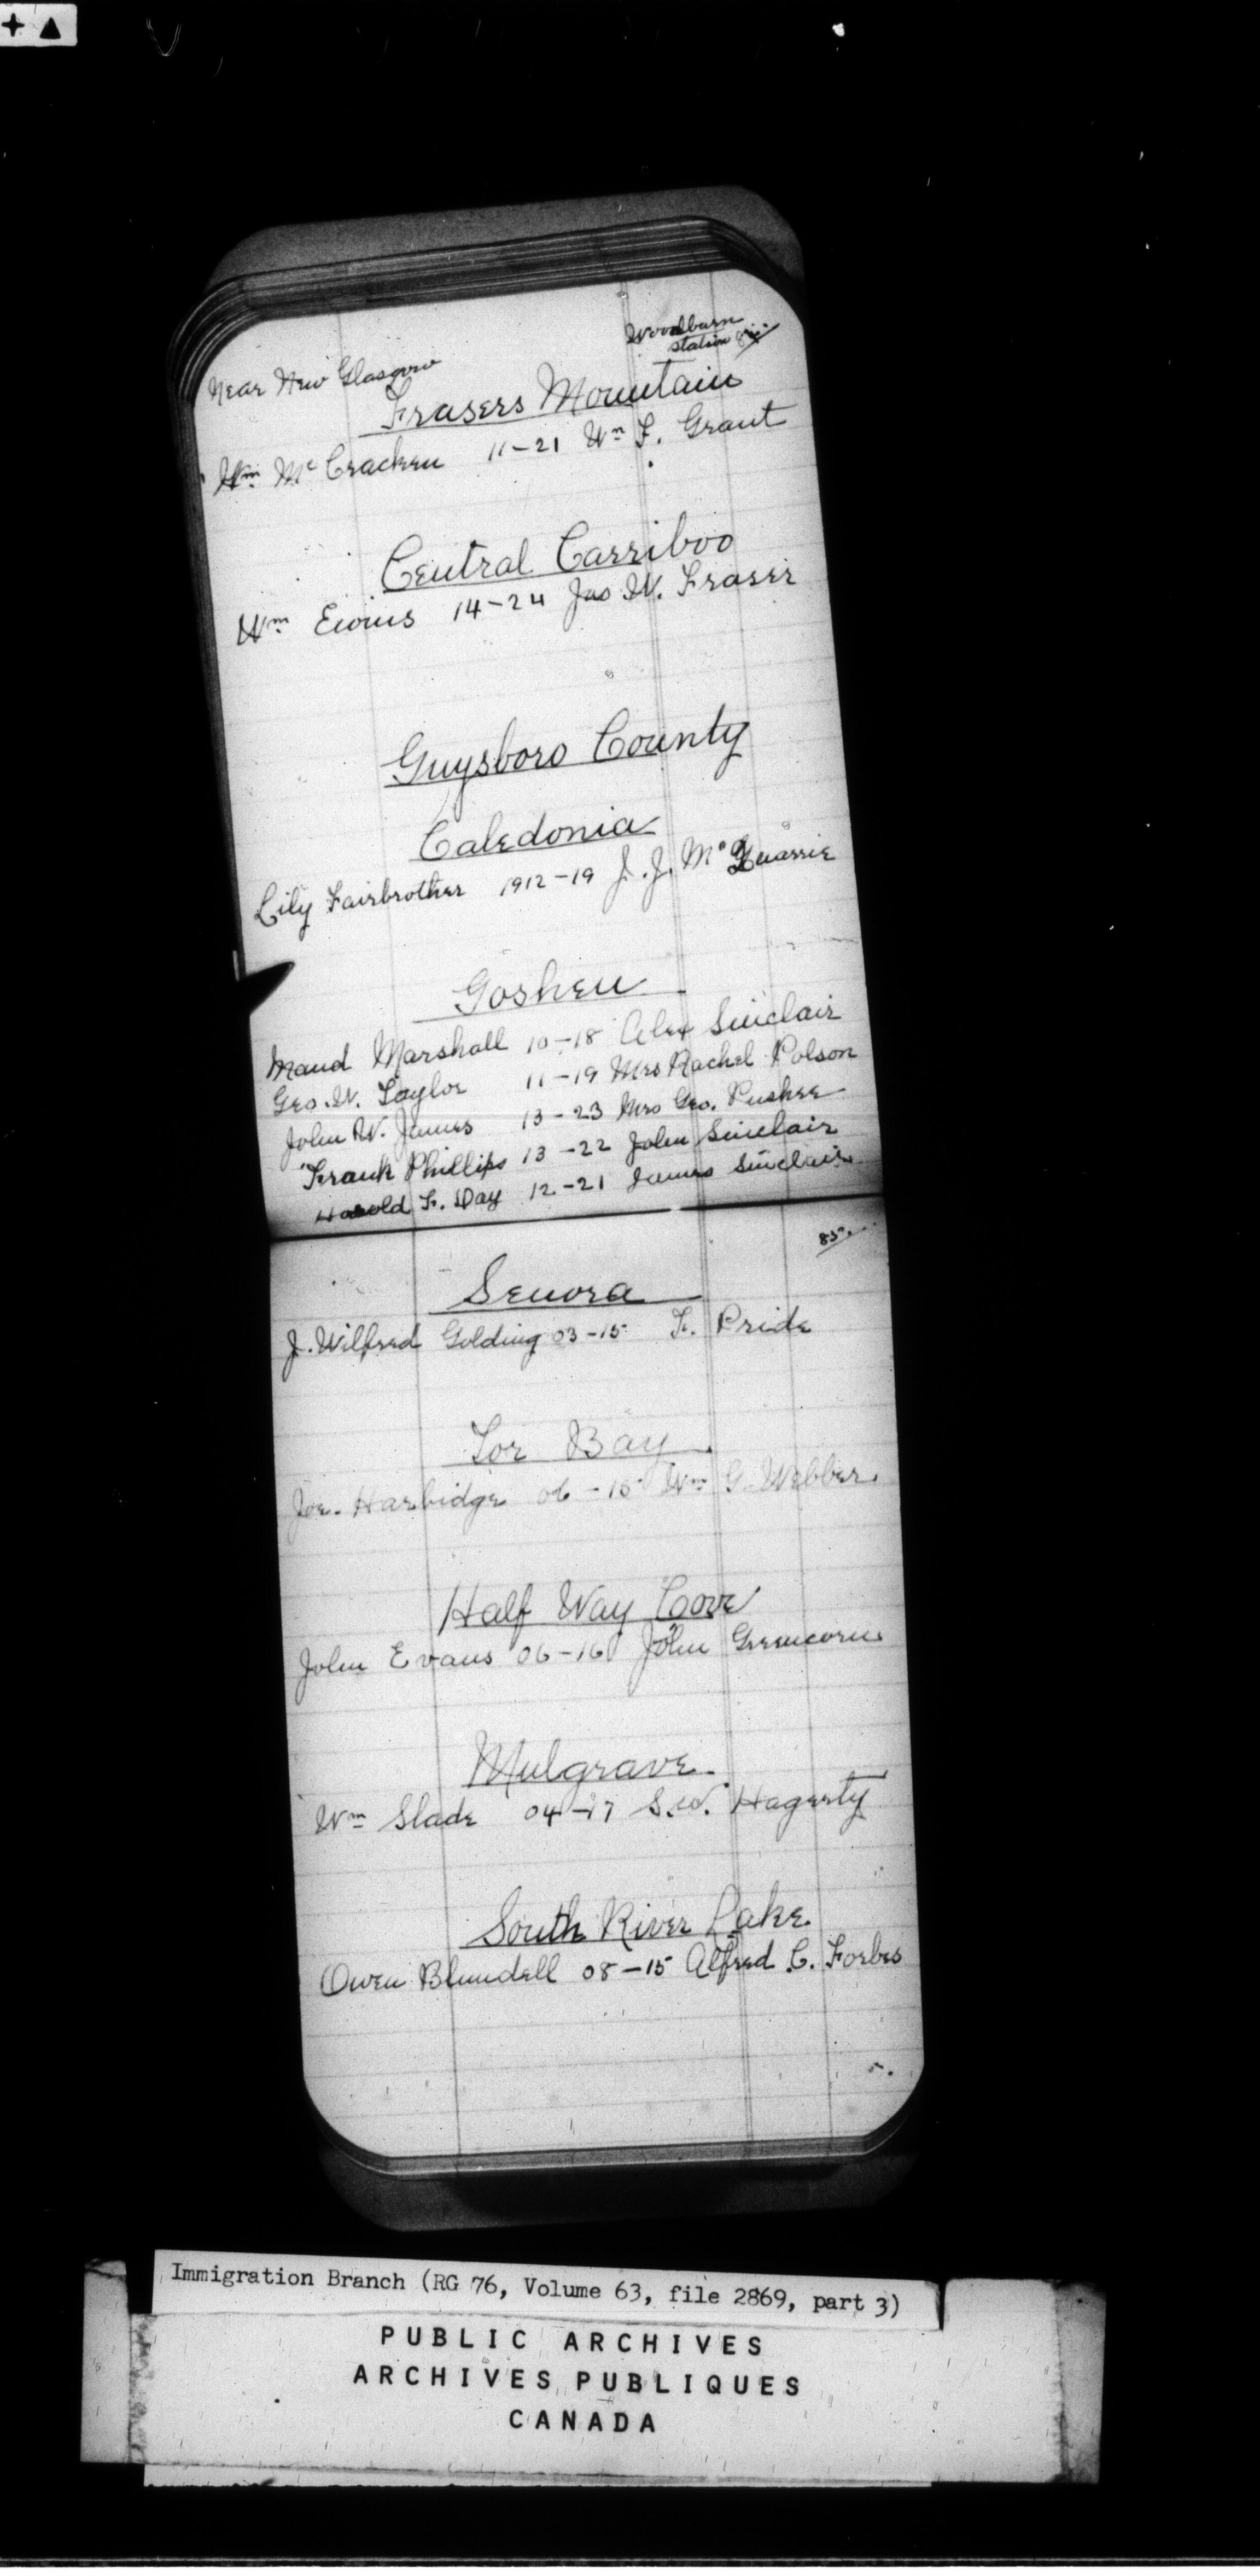 Woodburn
station
Near New Glasgow
Frasers Mountain
Wm McCracken 11-21 Wm F. Grant
Central Carriboo
Wm Ewins 14-24 Jas W. Fraser
Guysboro County
Caledonia
Lily Fairbrother 1912-19 J. J. McQuarrie
Goshen
Maud Marshall 10-18 Alex Sinclair
Geo. W. Taylor 11-19 Mrs Rachel Polson
John W. James 13-23 Mrs Geo. Pushee
Frank Phillips 13-22 John Sinclair
Harold F. Day 12-21 James Sinclair
85.
Senora
J. Wilfred Golding 03-15 F. Pride
Tor Bay
Joe. Harbidge 06-15 Wm G. Webber.
Half Way Cove
John Evans 06-16 John Greencorn
Mulgrave.
Wm Slade 04-17 S.W. Hagerty
South River Lake.
Owen Blundell 08-15 Alfred C. Forbes
Immigration Branch (RG 76, Volume 63, file 2869, part 3)
PUBLIC ARCHIVES
ARCHIVES PUBLIQUES
CANADA